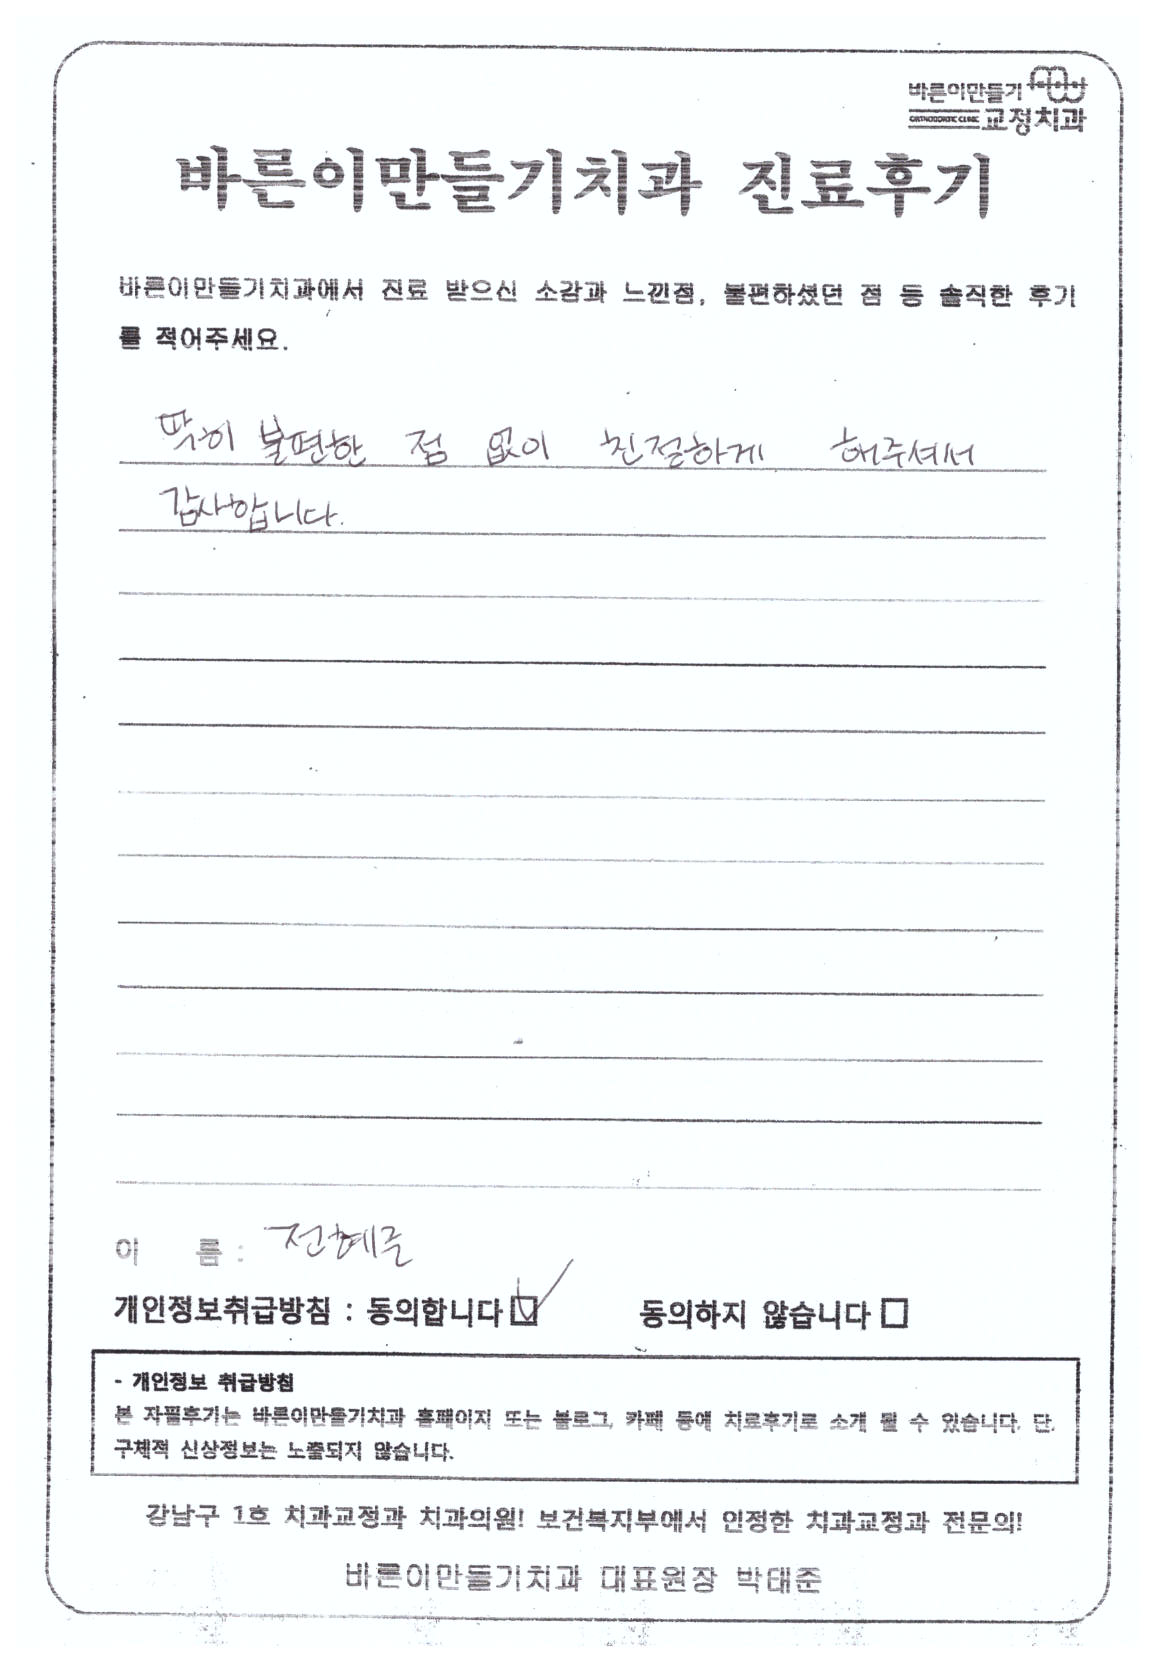 바른이만들기
ORTHODONTIC CLINIC 교정치과
바른이만들기치과 진료후기
바른이만들기치과에서 진료 받으신 소감과 느낀점, 불편하셨던 점 등 솔직한 후기
를 적어주세요.
딱히 불편한 점 없이 친절하게 해주셔서
감사합니다.
이 름 :
개인정보취급방침 : 동의합니다 동의하지 않습니다
- 개인정보 취급방침
본 자필후기는 바른이만들기치과 홈페이지 또는 블로그, 카페 등에 치료후기로 소개 될 수 있습니다. 단,
구체적 신상정보는 노출되지 않습니다.
강남구 1호 치과교정과 치과의원! 보건복지부에서 인정한 치과교정과 전문의!
바른이만들기치과 대표원장 박태준